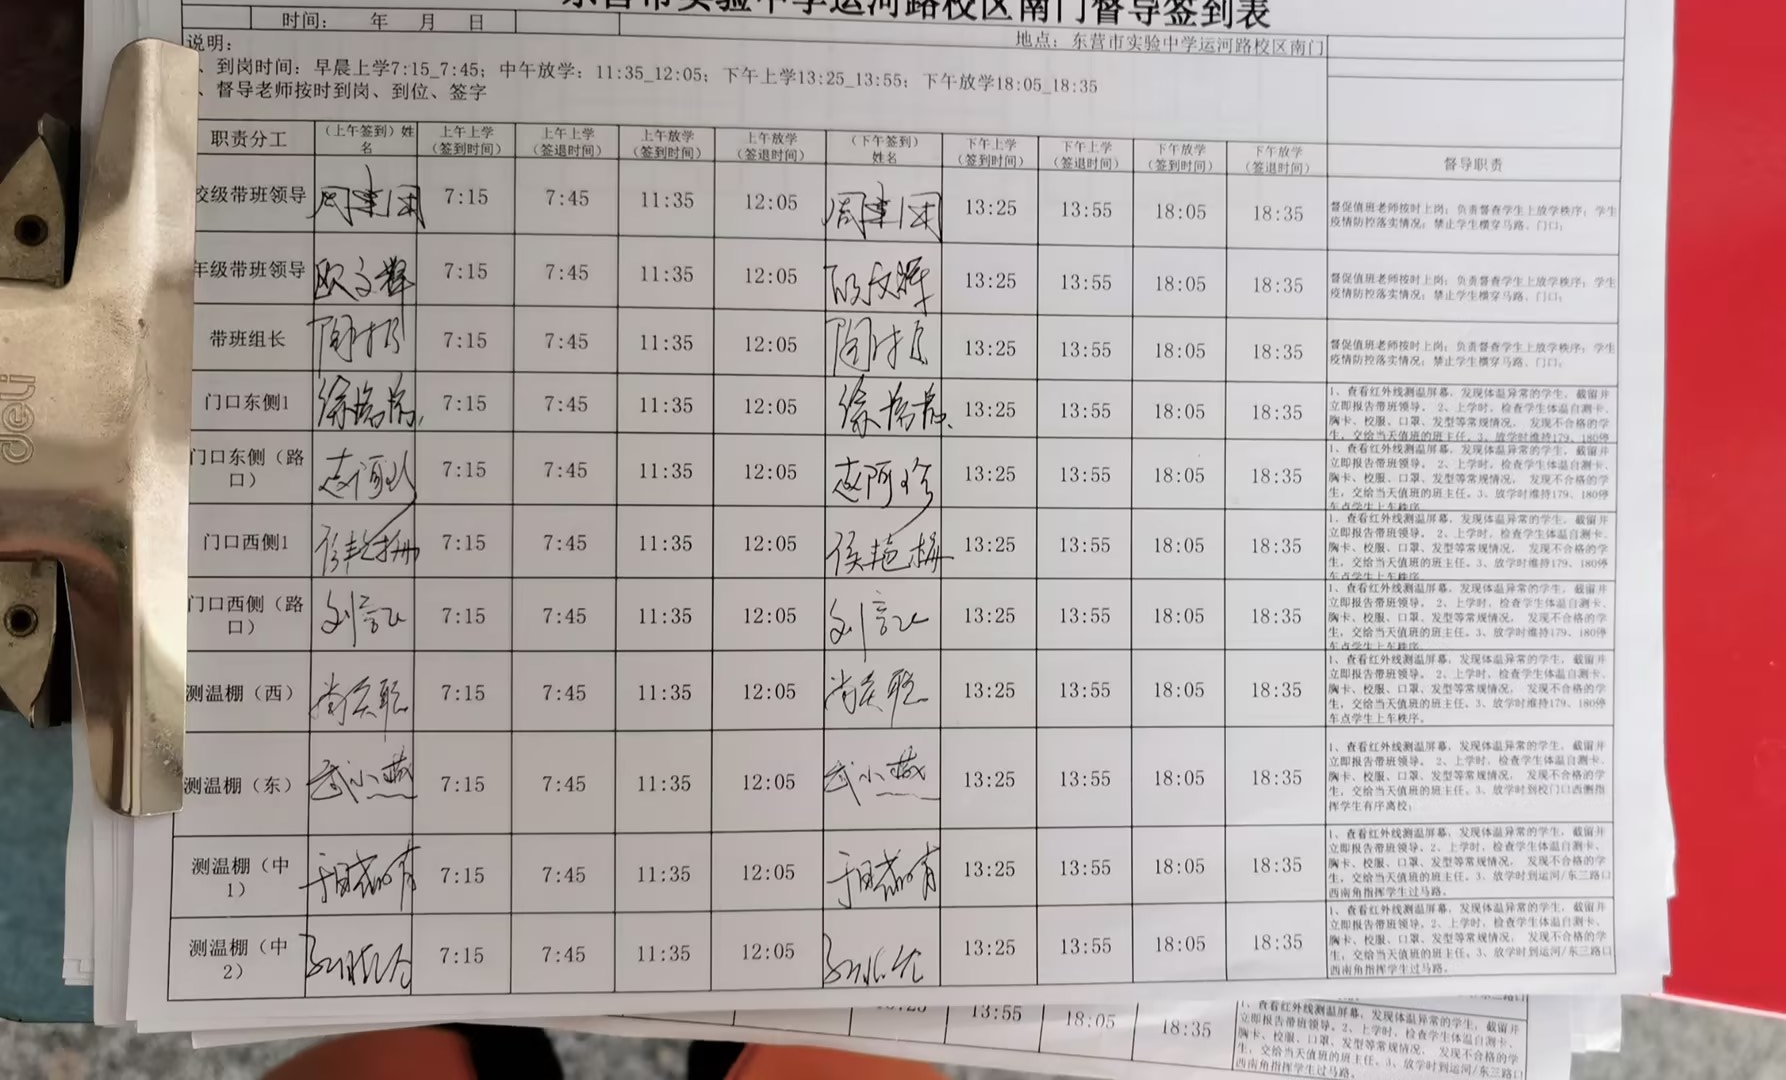 东营市实验中学运河路校区南门督导签到表
时间： 年 月 日
地点：东营市实验中学运河路校区南门
说明：
、到岗时间：早晨上学7:15_7:45；中午放学：11:35_12:05；下午上学13:25_13:55；下午放学18:05_18:35
、督导老师按时到岗、到位、签字
职责分工 （上午签到）姓名 上午上学（签到时间） 上午上学（签退时间） 上午放学（签到时间） 上午放学（签退时间） （下午签到）姓名 下午上学（签到时间） 下午上学（签退时间） 下午放学（签到时间） 下午放学（签退时间） 督导职责
校级带班领导 周建国 7:15 7:45 11:35 12:05 周建国 13:25 13:55 18:05 18:35 督促值班老师按时上岗；负责督查学生上放学秩序；学生
疫情防控落实情况；禁止学生横穿马路、门口；
年级带班领导 欧文辉 7:15 7:45 11:35 12:05 欧文辉 13:25 13:55 18:05 18:35 督促值班老师按时上岗；负责督查学生上放学秩序；学生
疫情防控落实情况；禁止学生横穿马路、门口；
带班组长 7:15 7:45 11:35 12:05 13:25 13:55 18:05 18:35 督促值班老师按时上岗；负责督查学生上放学秩序；学生
疫情防控落实情况；禁止学生横穿马路、门口；
门口东侧1 7:15 7:45 11:35 12:05 13:25 13:55 18:05 18:35 1、查看红外线测温屏幕，发现体温异常的学生，截留并
立即报告带班领导。 2、上学时，检查学生体温自测卡、
胸卡、校服、口罩、发型等常规情况， 发现不合格的学
生，交给当天值班的班主任。3、放学时维持179、180停
门口东侧（路口） 7:15 7:45 11:35 12:05 13:25 13:55 18:05 18:35 1、查看红外线测温屏幕，发现体温异常的学生，截留并
立即报告带班领导。 2、上学时，检查学生体温自测卡、
胸卡、校服、口罩、发型等常规情况， 发现不合格的学
生，交给当天值班的班主任。3、放学时维持179、180停
车点学生上车秩序。
门口西侧1 侯艳梅 7:15 7:45 11:35 12:05 侯艳梅 13:25 13:55 18:05 18:35 1、查看红外线测温屏幕，发现体温异常的学生，截留并
立即报告带班领导。 2、上学时，检查学生体温自测卡、
胸卡、校服、口罩、发型等常规情况， 发现不合格的学
生，交给当天值班的班主任。3、放学时维持179、180停
车点学生上车秩序。
门口西侧（路口） 7:15 7:45 11:35 12:05 13:25 13:55 18:05 18:35 1、查看红外线测温屏幕，发现体温异常的学生，截留并
立即报告带班领导。 2、上学时，检查学生体温自测卡、
胸卡、校服、口罩、发型等常规情况， 发现不合格的学
生，交给当天值班的班主任。3、放学时维持179、180停
车点学生上车秩序。
测温棚（西） 7:15 7:45 11:35 12:05 13:25 13:55 18:05 18:35 1、查看红外线测温屏幕，发现体温异常的学生，截留并
立即报告带班领导。 2、上学时，检查学生体温自测卡、
胸卡、校服、口罩、发型等常规情况， 发现不合格的学
生，交给当天值班的班主任。3、放学时维持179、180停
车点学生上车秩序。
测温棚（东） 武小燕 7:15 7:45 11:35 12:05 武小燕 13:25 13:55 18:05 18:35 1、查看红外线测温屏幕，发现体温异常的学生，截留并
立即报告带班领导。 2、上学时，检查学生体温自测卡、
胸卡、校服、口罩、发型等常规情况， 发现不合格的学
生，交给当天值班的班主任。3、放学时到校门口西侧指
挥学生有序离校；
测温棚（中1） 7:15 7:45 11:35 12:05 13:25 13:55 18:05 18:35 1、查看红外线测温屏幕，发现体温异常的学生，截留并
立即报告带班领导。2、上学时，检查学生体温自测卡、
胸卡、校服、口罩、发型等常规情况， 发现不合格的学
生，交给当天值班的班主任。3、放学时到运河/东三路口
西南角指挥学生过马路。
测温棚（中2） 7:15 7:45 11:35 12:05 13:25 13:55 18:05 18:35 1、查看红外线测温屏幕，发现体温异常的学生，截留并
立即报告带班领导。2、上学时，检查学生体温自测卡、
胸卡、校服、口罩、发型等常规情况， 发现不合格的学
生，交给当天值班的班主任。3、放学时到运河/东三路口
西南角指挥学生过马路。
13:55 18:05 18:35 1、查看红外线测温屏幕，发现体温异常的学生，截留并
立即报告带班领导。2、上学时，检查学生体温自测卡、
胸卡、校服、口罩、发型等常规情况， 发现不合格的学
生，交给当天值班的班主任。3、放学时到运河/东三路口
西南角指挥学生过马路。
deli